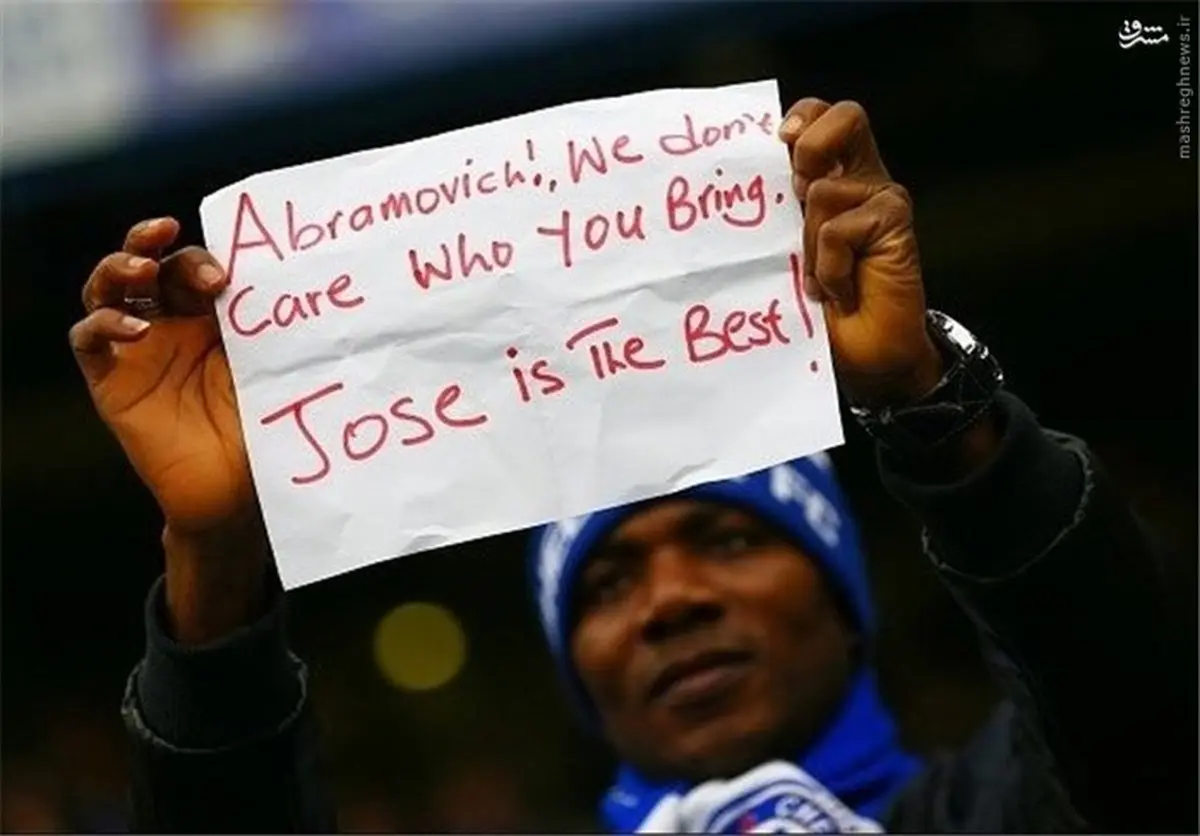 Abramovich!, We don't
Care Who You Bring.
Jose is The Best!
مشرق
mashreghnews.ir
CHE